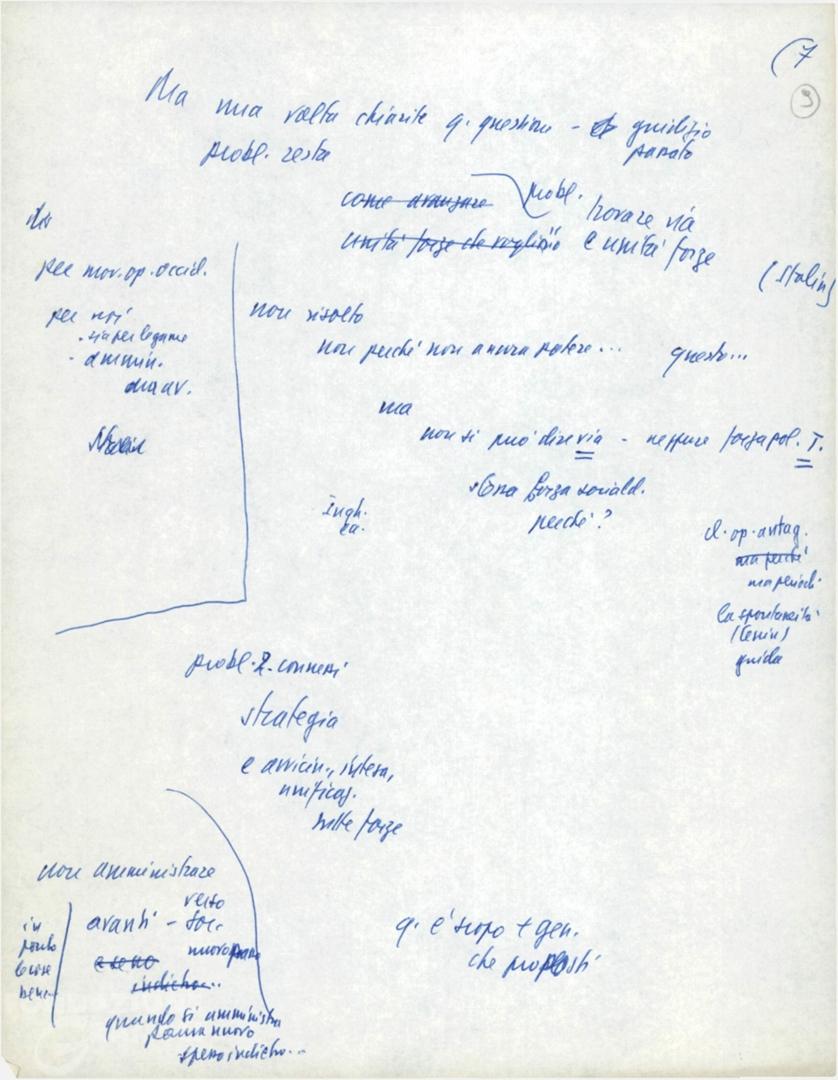 (7
9
Ma una volta chiarite q. questioni - giudizio
passato
probl. resta
come avanzare probl. trovare via
unità forze che vogliono e unità forze
(Stalin)
per mov. op. occid.
per noi
- sia per legame
- ammin.
non risolto
non perché non ancora potere... questo...
ma
non si può dire via - neppure forza pol. I.
stessa forza sociald.
perché?
Ingh.
cl. op. antag.
ma perché
ma perciò
la spontaneità
(Lenin)
guida
probl. 2 connessi
strategia
e avvicin., intesa,
unificaz.
tutte forze
non amministrare
avanti - verso
soc.
nuovo
e seno
indietro...
in
quando si amministra
senza nuovo
spesso indietro...
q. è scopo + gen.
che proposti